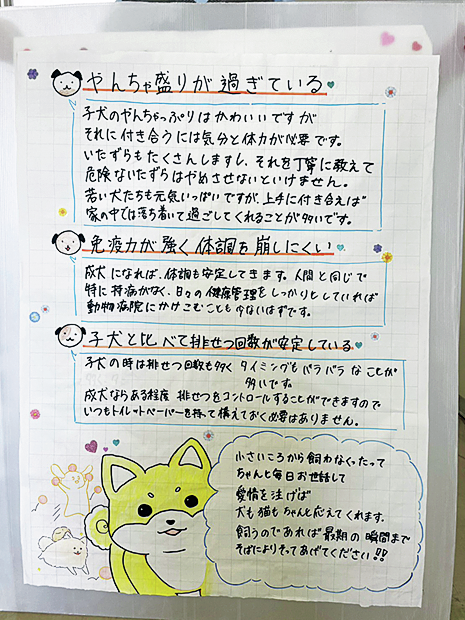 やんちゃ盛りが過ぎている
子犬のやんちゃっぷりはかわいいですが
それに付き合うには気分と体力が必要です。
いたずらもたくさんしますし、それを丁寧に教えて
危険ないたずらはやめさせないといけません。
若い犬たちも元気いっぱいですが、上手に付き合えば
家の中では落ち着いて過ごしてくれることが多いです。
免疫力が強く体調を崩しにくい
成犬になれば、体調も安定してきます。人間と同じで
特に持病がなく、日々の健康管理をしっかりとしていれば
動物病院にかけこむことも少ないはずです。
子犬と比べて排せつ回数が安定している
子犬の時は排せつ回数も多く タイミングもバラバラなことが
多いです。
成犬ならある程度 排せつをコントロールすることができますので
いつもトイレットペーパーを持って構えておく必要はありません。
小さいころから飼わなくったって
ちゃんと毎日お世話して
愛情を注げば
犬も猫もちゃんと応えてくれます。
飼うのであれば最期の瞬間まで
そばによりそってあげてください!!